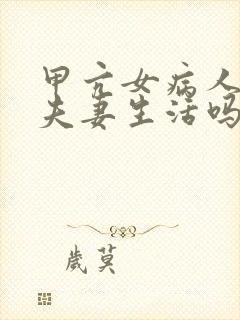 甲亢女病人
夫妻生活吗
岁莫